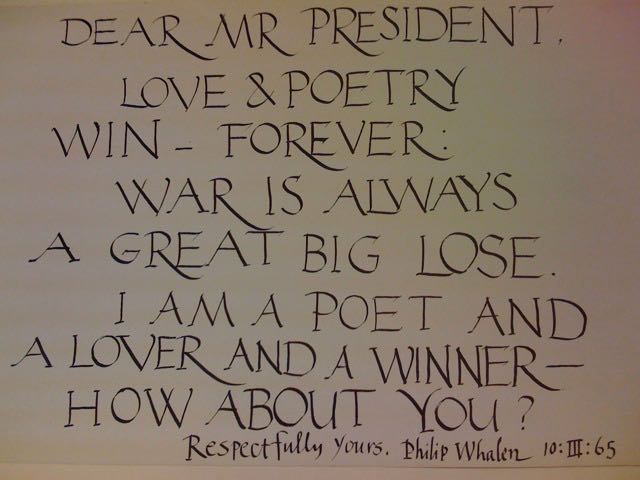 DEAR MR PRESIDENT,
LOVE & POETRY
WIN – FOREVER:
WAR IS ALWAYS
A GREAT BIG LOSE.
I AM A POET AND
A LOVER AND A WINNER—
HOW ABOUT YOU?
Respectfully yours. Philip Whalen 10:III:65